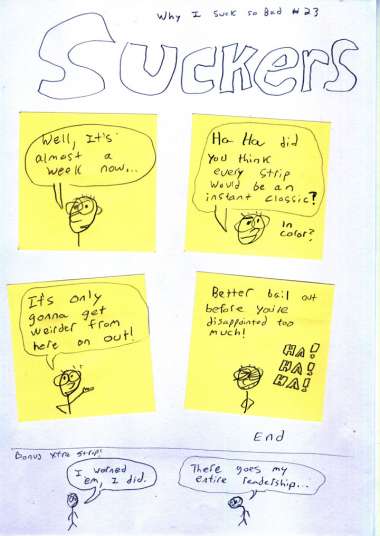 Why I Suck so Bad #23
Suckers
Well, It's
almost a
week now...
Ha Ha did
you think
every strip
would be an
instant classic?
In
color?
It's only
gonna get
weirder from
here on out!
Better bail out
before you're
disappointed too
much!
HA!
HA!
HA!
End
Bonus Xtra Strip!
I warned
em, I did.
There goes my
entire readership...